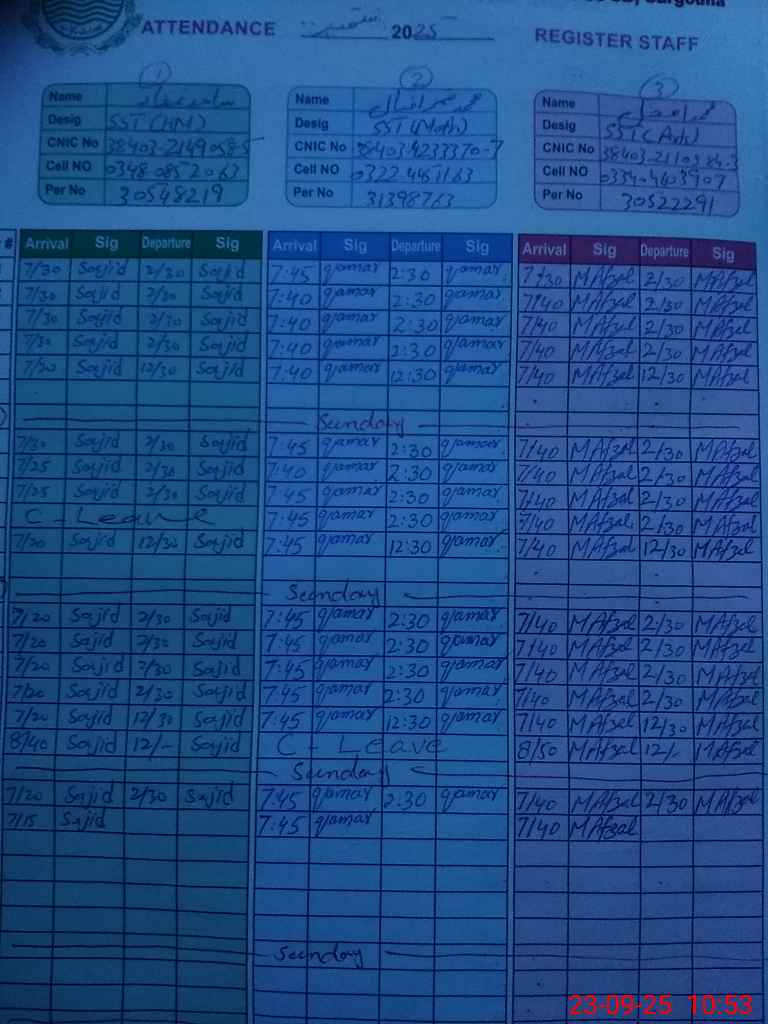 ATTENDANCE ستمبر 2025 REGISTER STAFF
1 2 3
Name Name محمد قمر اقبال Name محمد افضل
Desig SST(HM) Desig SST(Math) Desig SST(Arts)
CNIC No CNIC No 38403-9233370-7 CNIC No
Cell NO 0348-0852063 Cell NO Cell NO
Per No 30548219 Per No 31398763 Per No 30522291
Arrival Sig Departure Sig Arrival Sig Departure Sig Arrival Sig Departure Sig
7/30 Sajid 2/30 Sajid 7:45 qamar 2:30 qamar 7/30 MAfzal 2/30 MAfzal
7/30 Sajid 2/30 Sajid 7:40 qamar 2:30 qamar 7/40 MAfzal 2/30 MAfzal
7/30 Sajid 2/30 Sajid 7:40 qamar 2:30 qamar 7/40 MAfzal 2/30 MAfzal
7/30 Sajid 2/30 Sajid 7:40 qamar 2:30 qamar 7/40 MAfzal 2/30 MAfzal
7/20 Sajid 12/30 Sajid 7:40 qamar 12:30 qamar 7/40 MAfzal 12/30 MAfzal
Sunday
7/30 Sajid 2/30 Sajid 7:45 qamar 2:30 qamar 7/40 MAfzal 2/30 MAfzal
7/25 Sajid 2/30 Sajid 7:40 qamar 2:30 qamar 7/40 MAfzal 2/30 MAfzal
7/25 Sajid 2/30 Sajid 7:45 qamar 2:30 qamar 7/40 MAfzal 2/30 MAfzal
C - Leave 7:45 qamar 2:30 qamar 7/40 MAfzal 2/30 MAfzal
7/20 Sajid 12/30 Sajid 7:45 qamar 12:30 qamar 7/40 MAfzal 12/30 MAfzal
Sunday
7/20 Sajid 2/30 Sajid 7:45 qamar 2:30 qamar 7/40 MAfzal 2/30 MAfzal
7/20 Sajid 2/30 Sajid 7:45 qamar 2:30 qamar 7/40 MAfzal 2/30 MAfzal
7/20 Sajid 2/30 Sajid 7:45 qamar 2:30 qamar 7/40 MAfzal 2/30 MAfzal
7/20 Sajid 2/30 Sajid 7:45 qamar 2:30 qamar 7/40 MAfzal 2/30 MAfzal
7/20 Sajid 12/30 Sajid 7:45 qamar 12:30 qamar 7/40 MAfzal 12/30 MAfzal
8/40 Sajid 12/- Sajid C - Leave 8/50 MAfzal 12/- MAfzal
Sunday
7/20 Sajid 2/30 Sajid 7:45 qamar 2:30 qamar 7/40 MAfzal 2/30 MAfzal
7/15 Sajid 7:45 qamar 7/40 MAfzal
Sunday
23-09-25 10:53